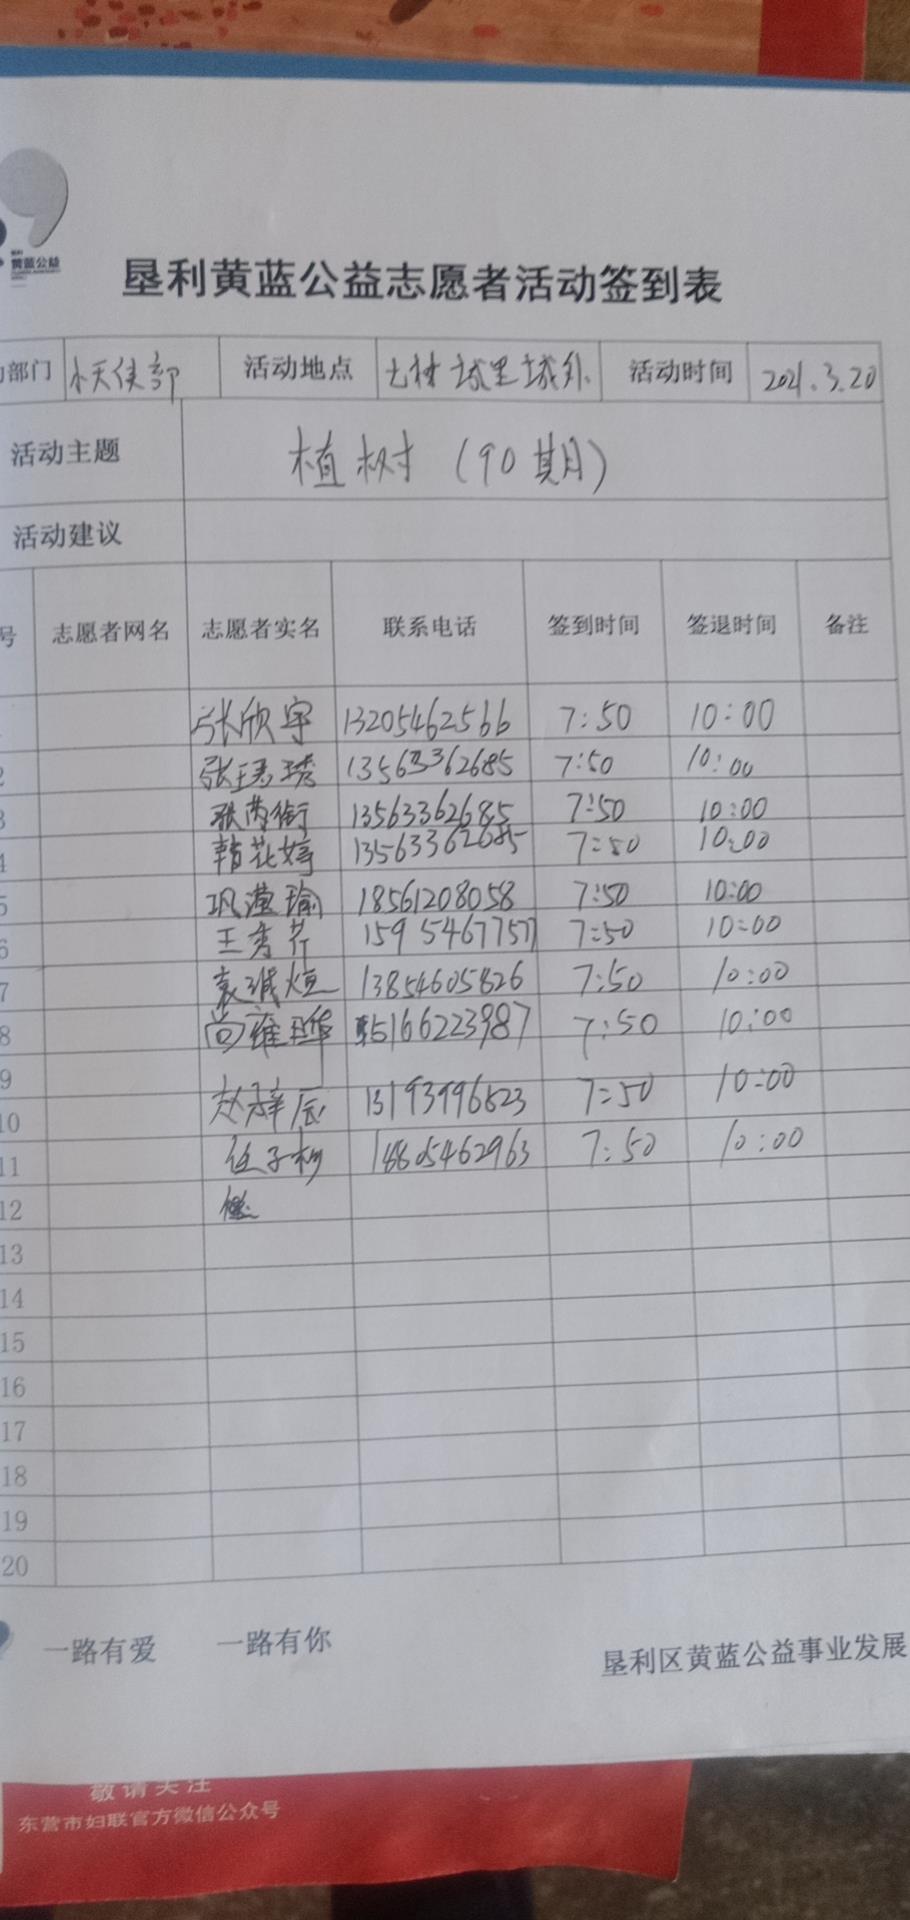 黄蓝公益
垦利黄蓝公益志愿者活动签到表
部门 小天使部 活动地点 七村城里城外 活动时间 2021.3.20
活动主题 植树（90期）
活动建议
号 志愿者网名 志愿者实名 联系电话 签到时间 签退时间 备注
张欣宇 13205462566 7:50 10:00
2 13563362685 7:50 10:00
3 13563362685 7:50 10:00
4 韩花婷 13563362685 7:50 10:00
5 巩滢瑜 18561208058 7:50 10:00
6 王秀芹 15954677577 7:50 10:00
7 袁诚烜 13854605826 7:50 10:00
8 尚雍晔 15166223987 7:50 10:00
9
10 赵梓辰 7:50 10:00
11 任子杉 7:50 10:00
12
13
14
15
16
17
18
19
20
一路有爱 一路有你
垦利区黄蓝公益事业发展
敬请关注
东营市妇联官方微信公众号